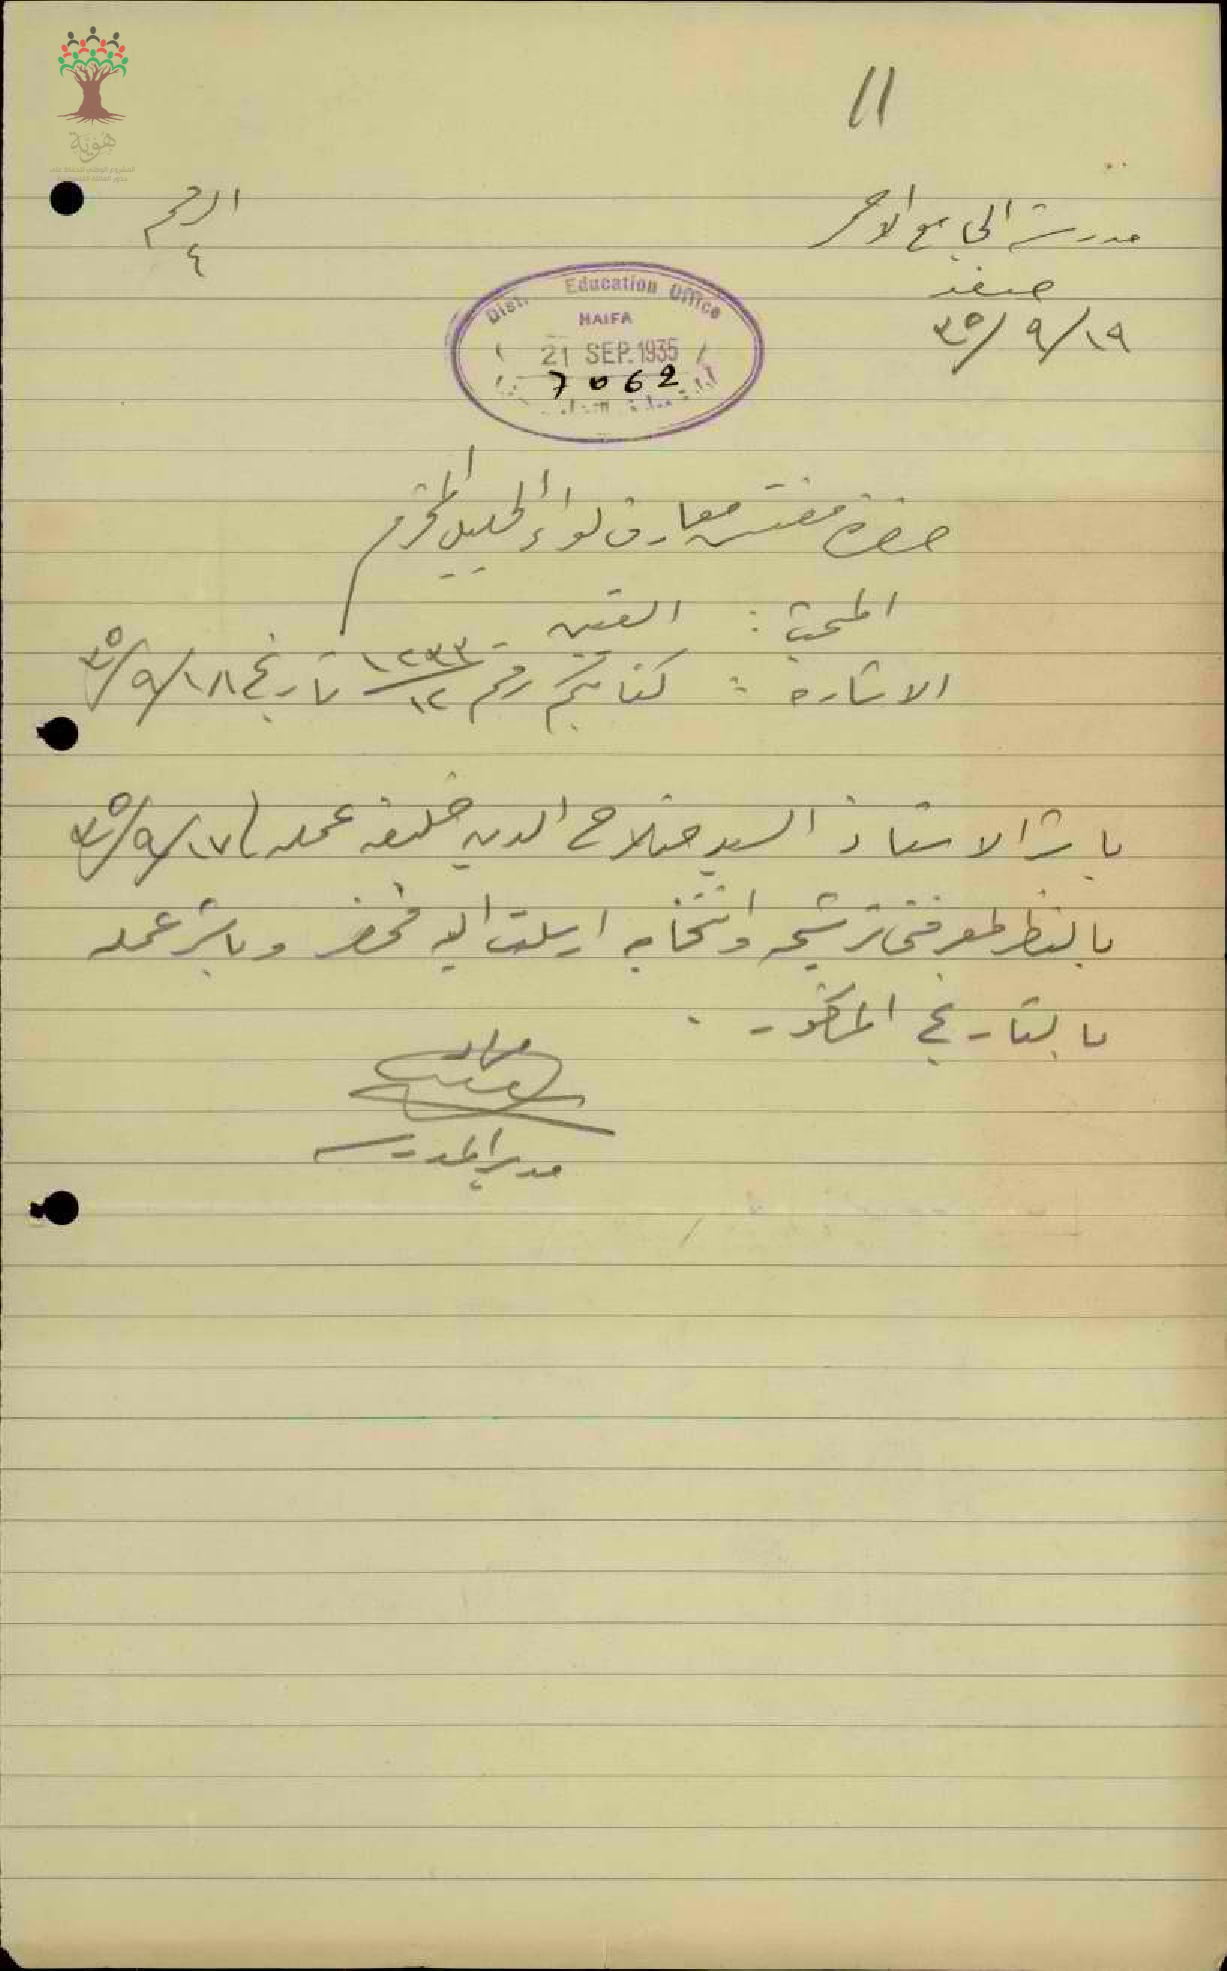 11
مدرسة الجامع الاحمر
صفد
١٩/٩/٣٥
الرقم
٤
Dist. Education Office
HAIFA
21 SEP. 1935
7062
حضرة مفتش معارف لواء الجليل المحترم
المبحث : التعيين
الاشارة : كتابكم رقم ١٢٣٣/١٢ تاريخ ١٨/٩/٣٥
باشر الاستاذ السيد صلاح الدين خليفه عمله في ١٧/٩/٣٥
بالنظر لمعرفتي ترشيحه وانتخابه ارسلت اليه فحضر وباشر عمله
بالتاريخ المذكور .
مدير المدرسة
هوية